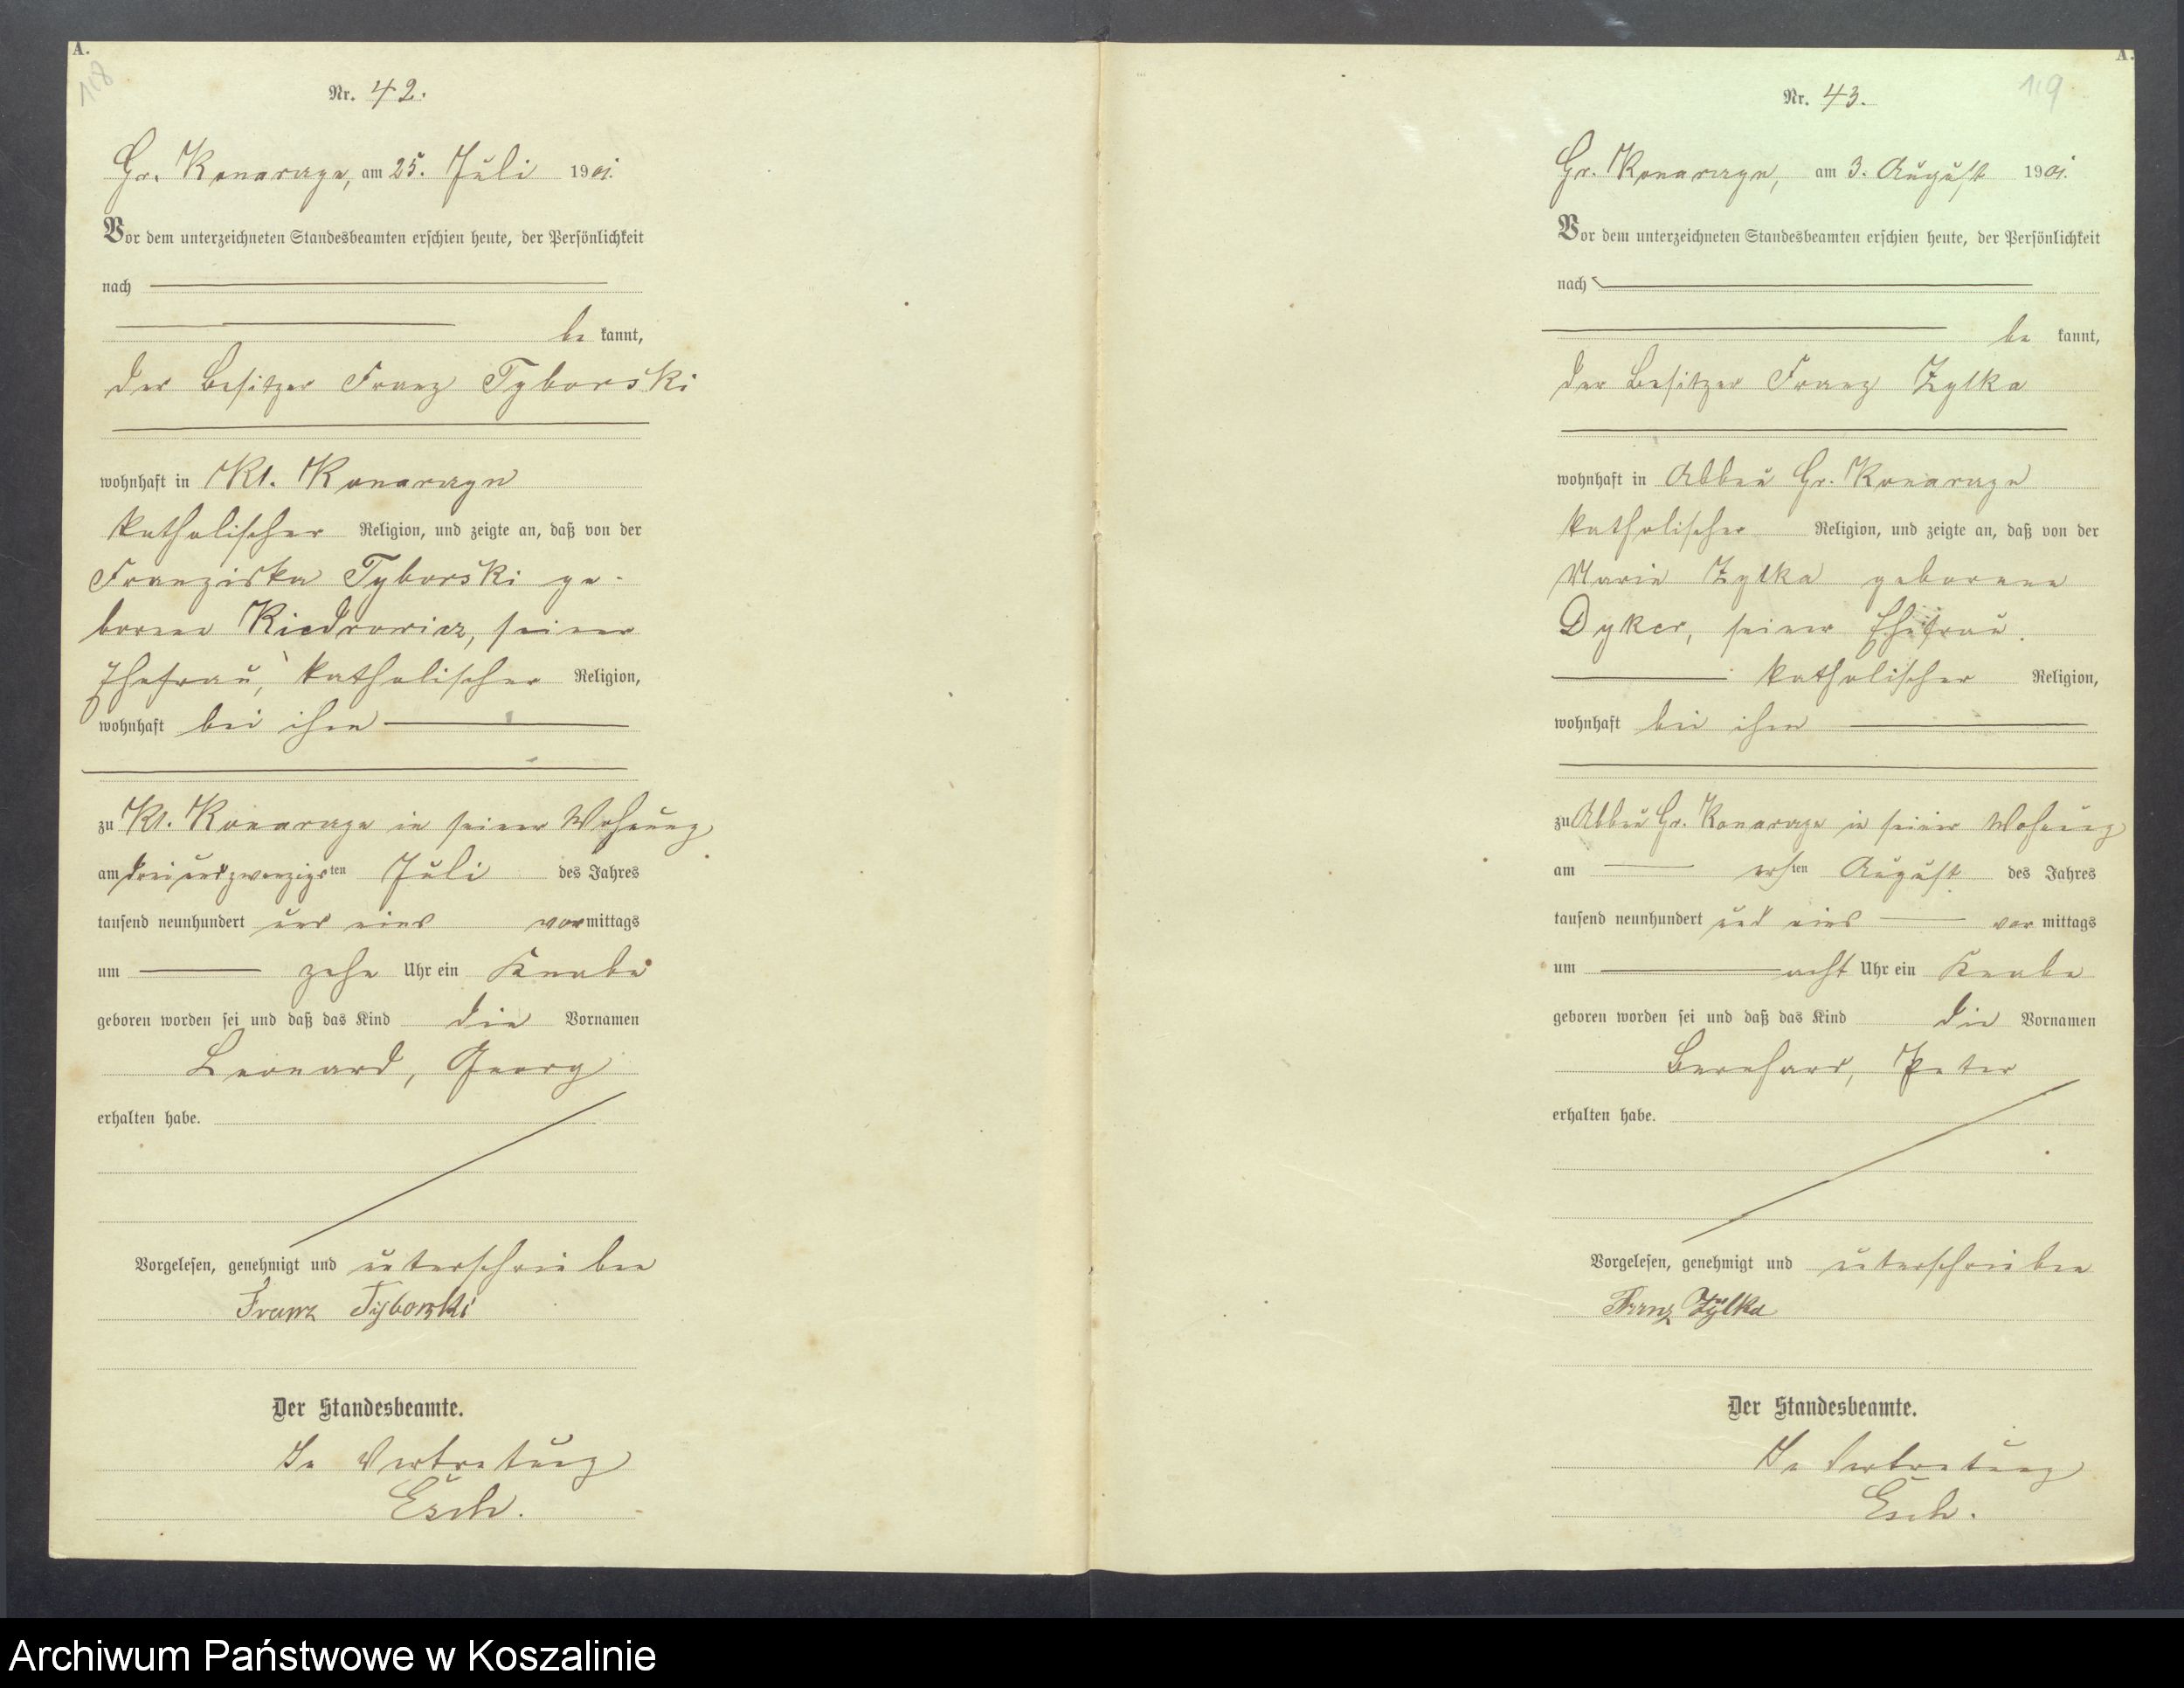 A.
108
Nr. 42.
Gr. Konarzyn, am 25. Juli 1901.
Vor dem unterzeichneten Standesbeamten erschien heute, der Persönlichkeit
nach
be kannt,
der Besitzer Franz Tyborski
wohnhaft in Kl. Konarzyn
katholischer Religion, und zeigte an, daß von der
Franziska Tyborski ge-
borene Kiedrowicz, seiner
Ehefrau, katholischer Religion,
wohnhaft bei ihm
zu Kl. Konarzyn in seiner Wohnung
am dreiundzwanzigsten Juli des Jahres
tausend neunhundert und eins vormittags
um zehn Uhr ein Knabe
geboren worden sei und daß das Kind die Vornamen
Leonard, Georg
erhalten habe.
Vorgelesen, genehmigt und unterschrieben
Franz Tyborski
Der Standesbeamte.
In Vertretung
Esch.
A.
109
Nr. 43.
Gr. Konarzyn, am 3. August 1901.
Vor dem unterzeichneten Standesbeamten erschien heute, der Persönlichkeit
nach
be kannt,
der Besitzer Franz Zylka
wohnhaft in Abbau Gr. Konarzyn
katholischer Religion, und zeigte an, daß von der
Marie Zylka geborene
Dyker, seiner Ehefrau.
katholischer Religion,
wohnhaft bei ihm
zu Abbau Gr. Konarzyn in seiner Wohnung
am ersten August des Jahres
tausend neunhundert und eins vor mittags
um acht Uhr ein Knabe
geboren worden sei und daß das Kind die Vornamen
Bernhard, Peter
erhalten habe.
Vorgelesen, genehmigt und unterschrieben
Franz Zÿlka
Der Standesbeamte.
In Vertretung
Esch.
Archiwum Państwowe w Koszalinie